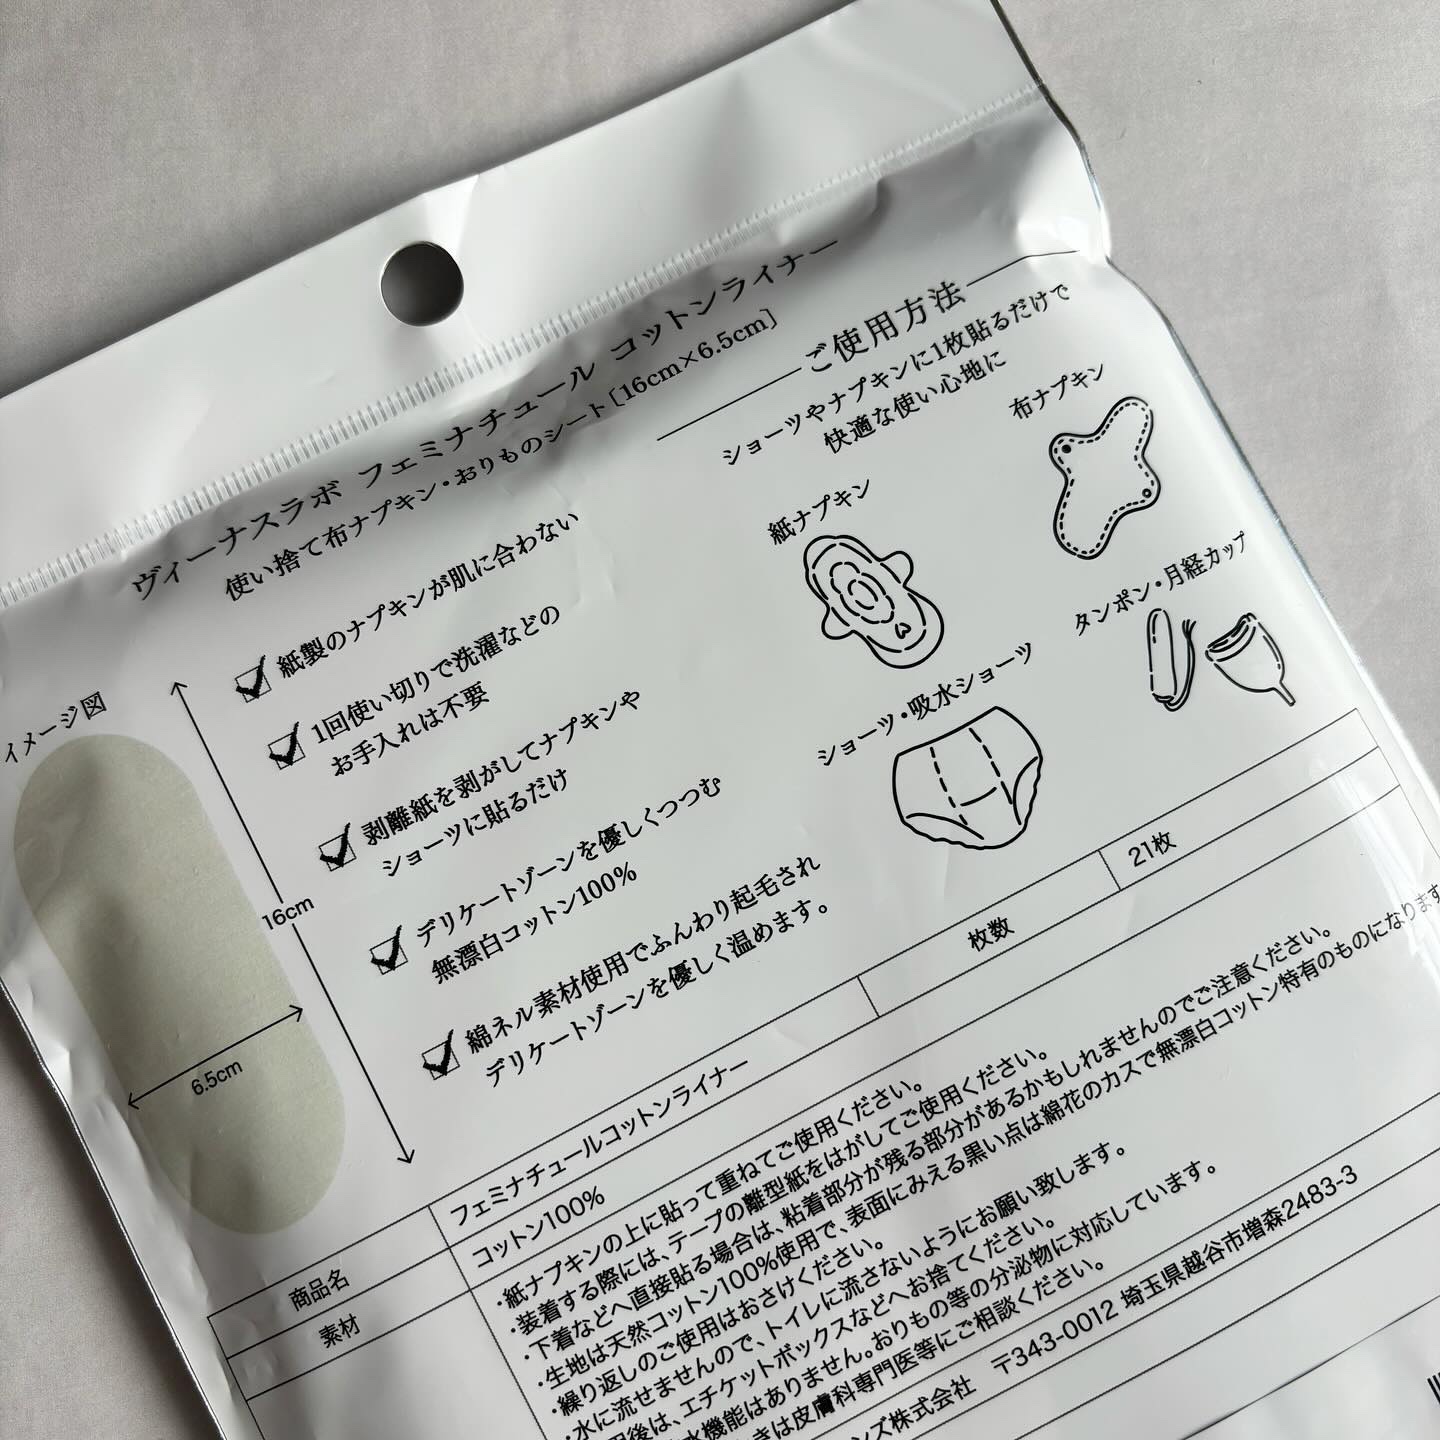 ヴィーナスラボ フェミナチュール コットンライナー
使い捨て布ナプキン・おりものシート[16cm×6.5cm]
紙製のナプキンが肌に合わない
1回使い切りで洗濯などの
お手入れは不要
剥離紙を剥がしてナプキンや
ショーツに貼るだけ
デリケートゾーンを優しくつつむ
無漂白コットン100%
綿ネル素材使用でふんわり起毛され
デリケートゾーンを優しく温めます。
イメージ図
16cm
6.5cm
ご使用方法
ショーツやナプキンに1枚貼るだけで
快適な使い心地に
紙ナプキン
布ナプキン
ショーツ・吸水ショーツ
タンポン・月経カップ
商品名
フェミナチュールコットンライナー
枚数
21枚
素材
コットン100%
・紙ナプキンの上に貼って重ねてご使用ください。
・装着する際には、テープの離型紙をはがしてご使用ください。
・下着などへ直接貼る場合は、粘着部分が残る部分があるかもしれませんのでご注意ください。
・生地は天然コットン100%使用で、表面にみえる黒い点は綿花のカスで無漂白コットン特有のものになります
・繰り返しのご使用はおさけください。
・水に流せませんので、トイレに流さないようにお願い致します。
後は、エチケットボックスなどへお捨てください。
水機能はありません。おりもの等の分泌物に対応しています。
きは皮膚科専門医等にご相談ください。
ンズ株式会社 〒343-0012 埼玉県越谷市増森2483-3